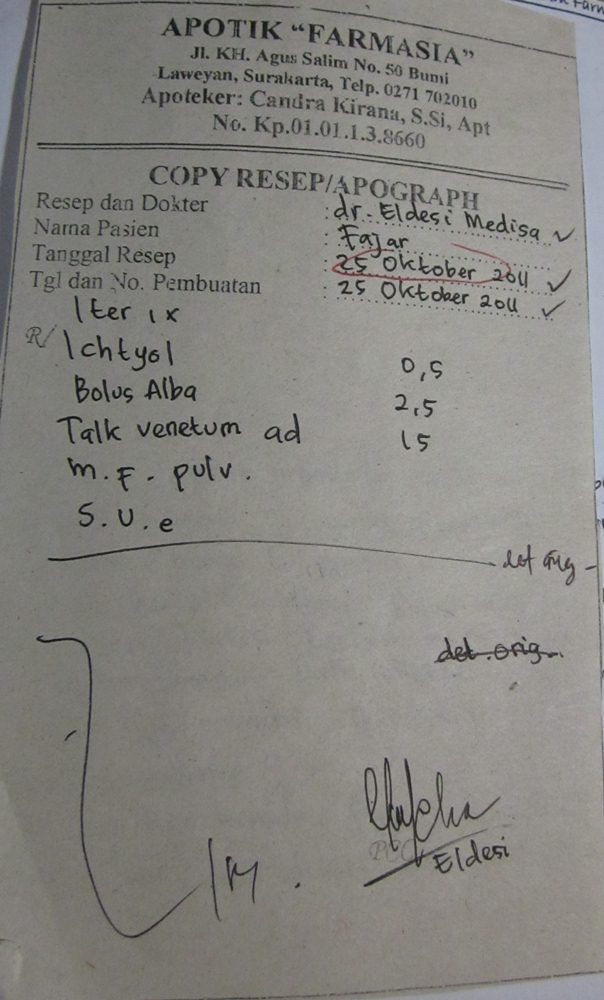 APOTIK “FARMASIA”
Jl. KH. Agus Salim No. 50 Bumi
Laweyan, Surakarta, Telp. 0271 702010
Apoteker: Candra Kirana, S.Si, Apt
No. Kp.01.01.1.3.8660
COPY RESEP/APOGRAPH
Resep dan Dokter : dr. Eldesi Medisa
Nama Pasien : Fajar
Tanggal Resep : 25 Oktober 2011
Tgl dan No. Pembuatan : 25 Oktober 2011
Iter 1x
R/ Ichtyol 0,5
Bolus Alba 2,5
Talk venetum ad 15
m.F. pulv.
S.U.e
det orig
det orig
Eldesi